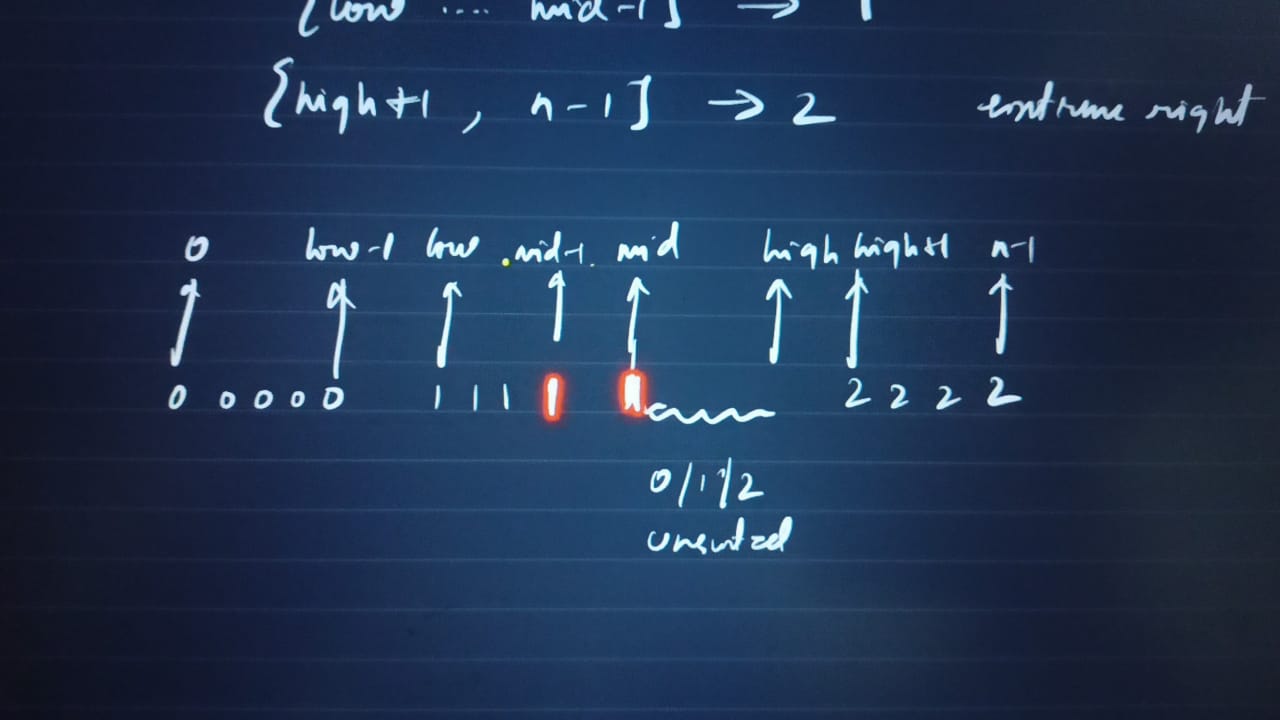 [low .... mid-1] → 1
[high+1 , n-1] → 2 extreme right
0 low-1 low mid-1 mid high high+1 n-1
0 0 0 0 0 1 1 1 1 1 2 2 2 2
0/1/2
unsorted